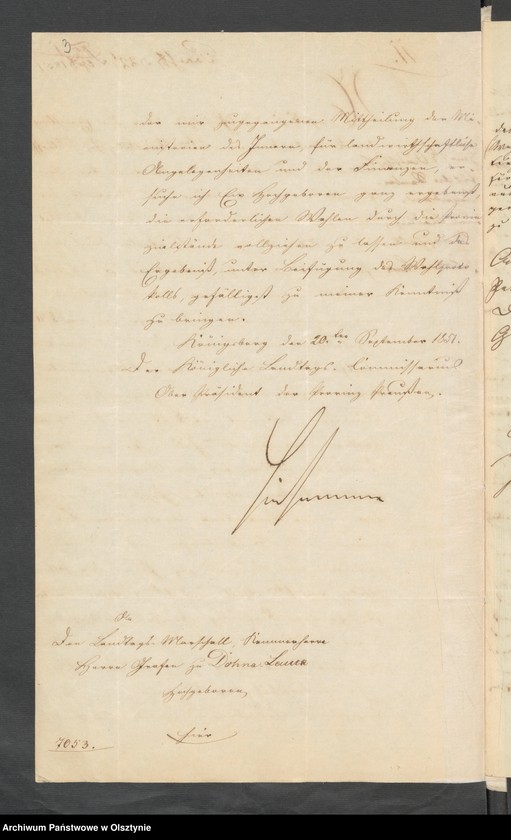 3
der mir zugegangenen Mittheilung der Mi-
nisterien des Innern, für landwirthschaftliche
Angelegenheiten und der Finanzen, er-
suche ich Ew. Hochgeboren ganz ergebenst,
die erforderlichen Wahlen durch die Provin-
zialstände vollziehen zu lassen und das
Ergebniß, unter Beifügung des Wahlproto-
kolls, gefälligst zu meiner Kenntniß
zu bringen.
Königsberg den 20.ten September 1851.
Der Königliche Landtags-Commissarius
Ober Präsident der Provinz Preußen.
An
Den Landtags-Marschall, Kammerherrn
Herrn Grafen zu Dohna-Lauck
Hochgeboren
hier
7053.
Archiwum Państwowe w Olsztynie